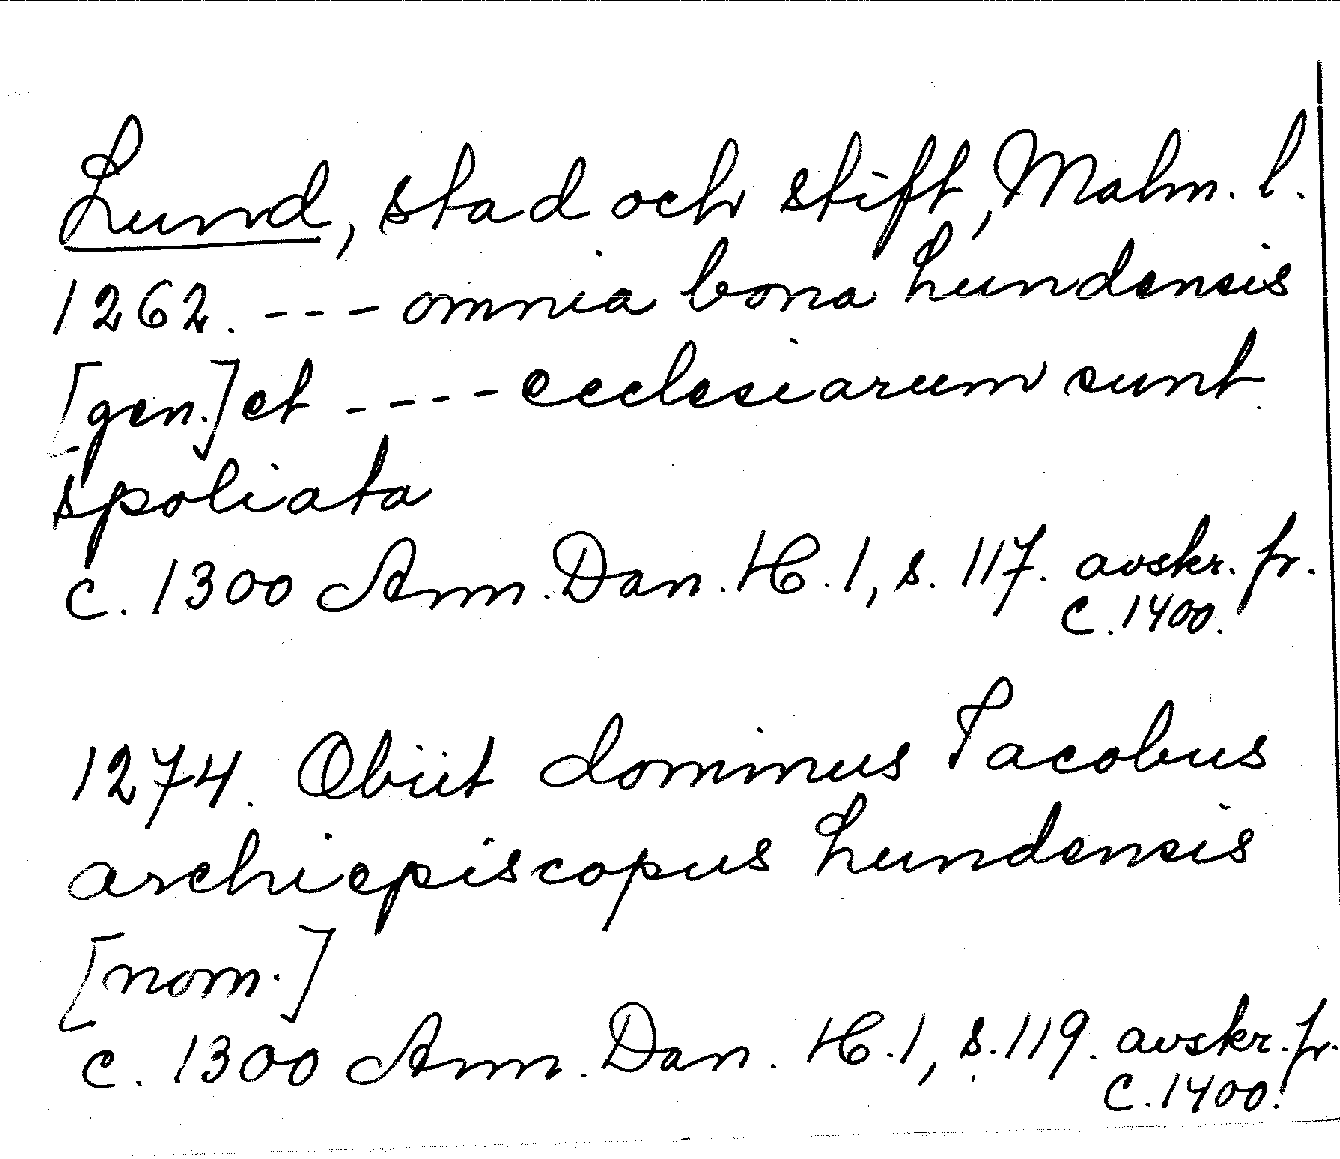 Lund, stad och stift, Malm. l.
1262. --- omnia bona lundensis
[gen.] et ---- ecclesiarum sunt
spoliata
c. 1300 Ann. Dan. H. 1, s. 117. avskr. fr.
c. 1400.
1274. Obiit dominus Jacobus
archiepiscopus lundensis
[nom.]
c. 1300 Ann. Dan. H. 1, s. 119. avskr. fr.
c. 1400.